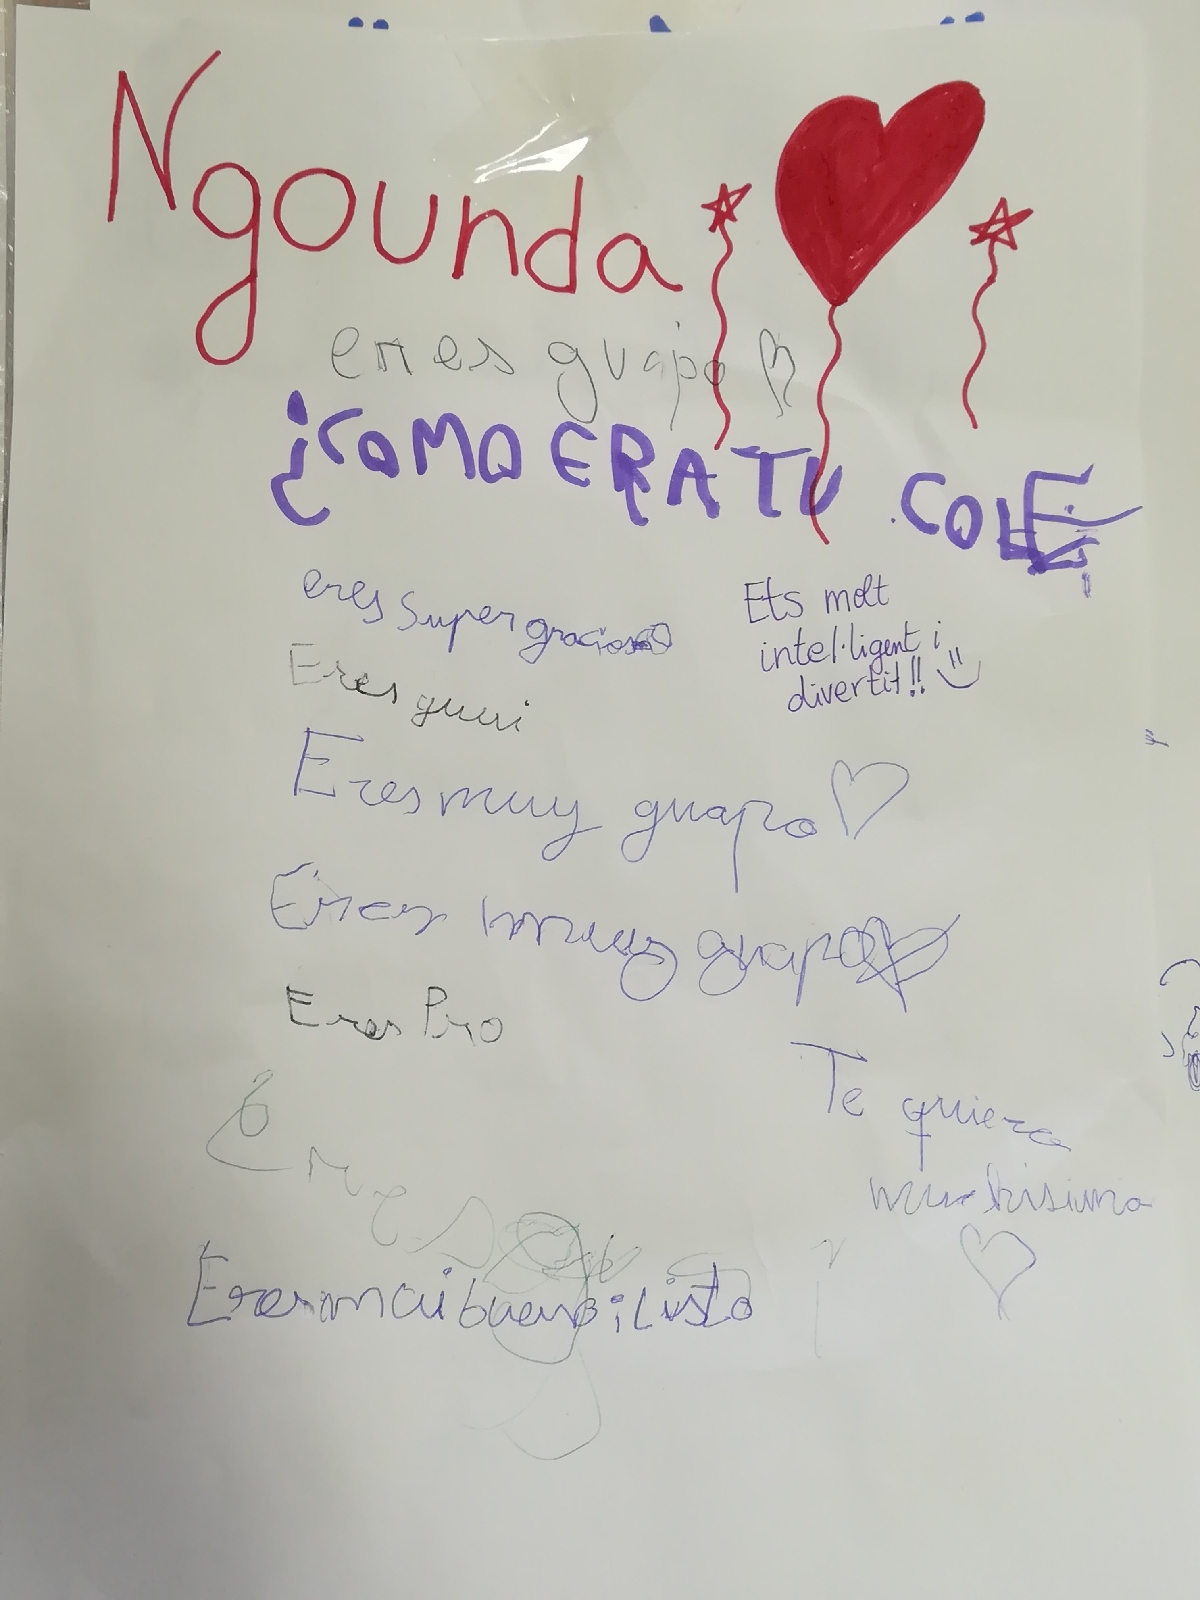 Ngounda
eres guapo
¿COMO ERA TU COLE
eres super gracioso
Ets molt
intel·ligent i
divertit!!
Eres guui
Eres muy guapo
Eres muy guapo
Eres Pro
Te quiero
muchisimo
Eres
Eres mui bueno i Listo